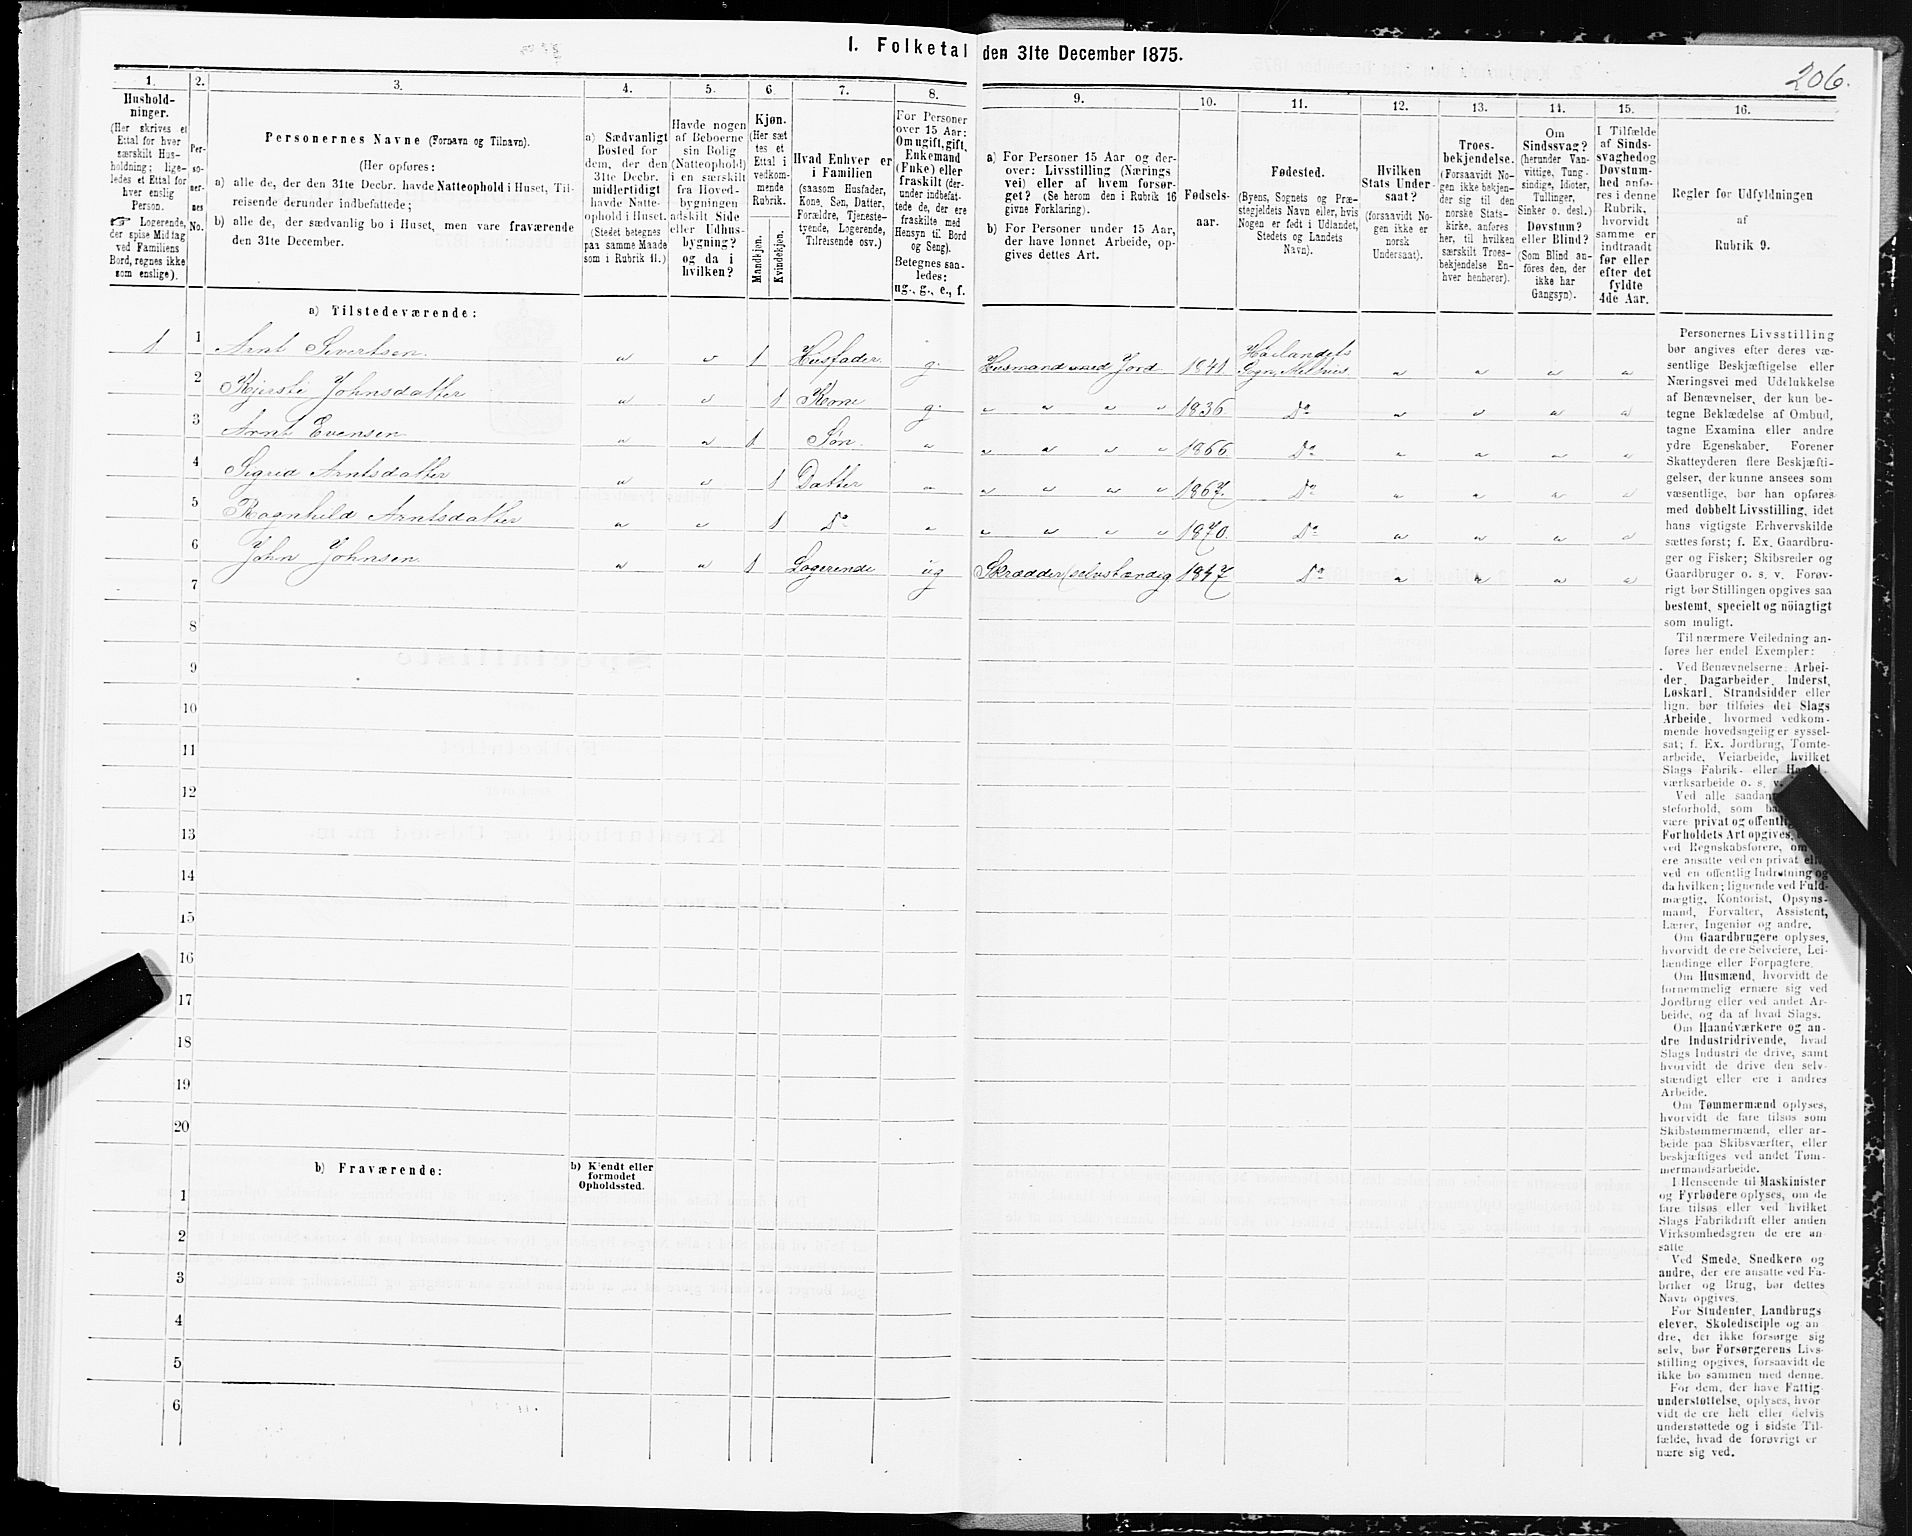 I. Folketal den 31te December 1875.
206.
1. 2. 3. 4. 5. 6. 7. 8. 9. 10. 11. 12. 13. 14. 15. 16.
Hushold-
ninger.
(Her skrives et
Ettal for hver
særskilt Hus-
holdning; lige-
ledes et Ettal for
hver enslig
Person.
☞ Logerende,
der spise Middag
ved Familiens
Bord, regnes ikke
som enslige).
Per-
so-
ner-
nes
No.
Personernes Navne (Fornavn og Tilnavn).
(Her opføres:
a) alle de, der den 31te Decbr. havde Natteophold i Huset, Til-
reisende derunder indbefattede;
b) alle de, der sædvanlig bo i Huset, men vare fraværende
den 31te December.
a) Sædvanligt
Bosted for
dem, der den
31te Decbr.
midlertidigt
havde Natte-
ophold i Huset.
(Stedet betegnes
paa samme Maade
som i Rubrik 11.)
Havde nogen
af Beboerne
sin Bolig
(Natteophold)
i en særskilt
fra Hoved-
bygningen
adskilt Side
eller Udhus-
bygning?
og da i
hvilken?
Kjøn.
(Her sæt
tes et
Ettal i
vedkom-
mende
Rubrik.
Mandkjøn.
Kvindekjøn.
Hvad Enhver er
i Familien
(saasom Husfader,
Kone, Søn, Datter,
Forældre, Tjeneste-
tyende, Logerende,
Tilreisende osv.)
For Personer
over 15 Aar:
Om ugift, gift,
Enkemand
(Enke) eller
fraskilt (der-
under indbefat-
tede de, der ere
fraskilte med
Hensyn til Bord
og Seng).
Betegnes saa-
ledes:
ug., g., e., f.
a) For Personer 15 Aar og der-
over: Livsstilling (Nærings
vei) eller af hvem forsør-
get? (Se herom den i Rubrik 16
givne Forklaring).
b) For Personer under 15 Aar,
der have lønnet Arbeide, op-
gives dettes Art.
Fødsels-
aar.
Fødested.
(Byens, Sognets og Præ-
stegjeldets Navn eller, hvis
Nogen er født i Udlandet,
Stedets og Landets
Navn).
Hvilken
Stats Under-
saat?
(forsaavidt No-
gen ikke er
norsk
Undersaat).
Troes-
bekjendelse.
(Forsaavidt No
gen ikke bekjen-
der sig til den
norske Stats-
kirke, anføres
her, til hvilken
særskilt Troes-
bekjendelse En-
hver henhører).
Om
Sindssvag?
(herunder Van-
vittige, Tung-
sindige, Idioter,
Tullinger,
Sinker o. desl.)
Døvstum?
eller Blind?
(Som Blind an-
føres den, der
ikke har
Gangsyn).
I Tilfælde
af Sinds-
svaghed og
Døvstum-
hed anfø-
res i denne
Rubrik,
hvorvidt
samme er
indtraadt
før eller
efter det
fyldte
4de Aar.
Regler for Udfyldningen
af
Rubrik 9.
a) Tilstedeværende:
1 1 Arnt Sivertsen. " " 1 Husfader. g. Husmand med Jord 1841 Høilandets Sogn, Melhus " " " "
2 Kjersti Johnsdatter " " 1 Kone g. " " " " 1836 Do " " " "
3 Arnt Evensen " " 1 Søn. " " " " " 1866 Do " " " "
4 Sigrid Arntsdatter " " 1 Datter " " " " " 1867. Do " " " "
5 Ragnhild Arntsdatter " " 1 Do " " " " " 1870. Do " " " "
6 John Johnsen. " " 1 Logerende ug Skrædder (selvstændig 1847 Do " " " "
7
8
9
10
11
12
13
14
15
16
17
18
19
20
b) Fraværende:
b) Kjendt eller
formodet
Opholdssted.
1
2
3
4
5
6
Personernes Livsstilling
bør angives efter deres væ-
sentlige Beskjæftigelse eller
Næringsvei med Udelukkelse
af Benævnelser, der kun be-
tegne Beklædelse af Ombud,
tagne Examina eller andre
ydre Egenskaber. Forener
Skatteyderen flere Beskjæfti-
gelser, der kunne ansees som
væsentlige, bør han opføres
med dobbelt Livsstilling, idet
hans vigtigste Erhvervskilde
sættes først; f. Ex. Gaardbru-
ger og Fisker; Skibsreder og
Gaardbruger o. s. v. Forøv-
rigt bør Stillingen opgives saa
bestemt, specielt og nöiagtigt
som muligt.
Til nærmere Veiledning an-
føres her endel Exempler:
Ved Benævnelserne: Arbei-
der, Dagarbeider, Inderst,
Løskarl, Strandsidder eller
lign. bør tilføies det Slags
Arbeide, hvormed vedkom-
mende hovedsagelig er syssel-
sat; f. Ex. Jordbrug, Tomte-
arbeide, Veiarbeide, hvilket
Slags Fabrik- eller
værksarbeide o. s. v.
Ved alle
steforhold, som
være privat og
Forholdets Art opgives,
ved Regnskabsførere, om
ere ansatte ved en privat
ved en offentlig Indretning og
da hvilken; lignende ved Fuld-
mægtig, Kontorist, Opsyns-
mand, Forvalter, Assistent,
Lærer, Ingeniør og andre.
Om Gaardbrugere oplyses,
hvorvidt de ere Selveiere, Lei-
lændinge eller Forpagtere.
Om Husmænd, hvorvidt de
fornemmelig ernære sig ved
Jordbrug eller ved andet Ar-
beide, og da af hvad Slags.
Om Haandværkere og an-
dre Industridrivende, hvad
Slags Industri de drive, samt
hvorvidt de drive den selv-
stændigt eller ere i andres
Arbeide.
Om Tømmermænd oplyses,
hvorvidt de fare tilsøs som
Skibstømmermænd, eller ar-
beide paa Skibsværfter, eller
beskjæftiges ved andet Tøm-
mermandsarbeide.
I Henseende til Maskinister
og Fyrbødere oplyses, om de
fare tilsøs eller ved hvilket
Slags Fabrikdrift eller anden
Virksomhedsgren de ere an-
satte
Ved Smede, Snedkere og
andre, der ere ansatte ved Fa-
briker og Brug, bør dettes
Navn opgives.
For Studenter, Landbrugs
elever, Skoledisciple og an
dre, der ikke forsørge sig
selv, bør Forsørgerens Livs-
stilling opgives, forsaavidt de
ikke bo sammen med denne.
For dem, der have Fattig-
understøttelse, oplyses, hvor
vidt de ere helt eller delvis
understøttede og i sidste Til-
fælde, hvad de forøvrigt er
nære sig ved.